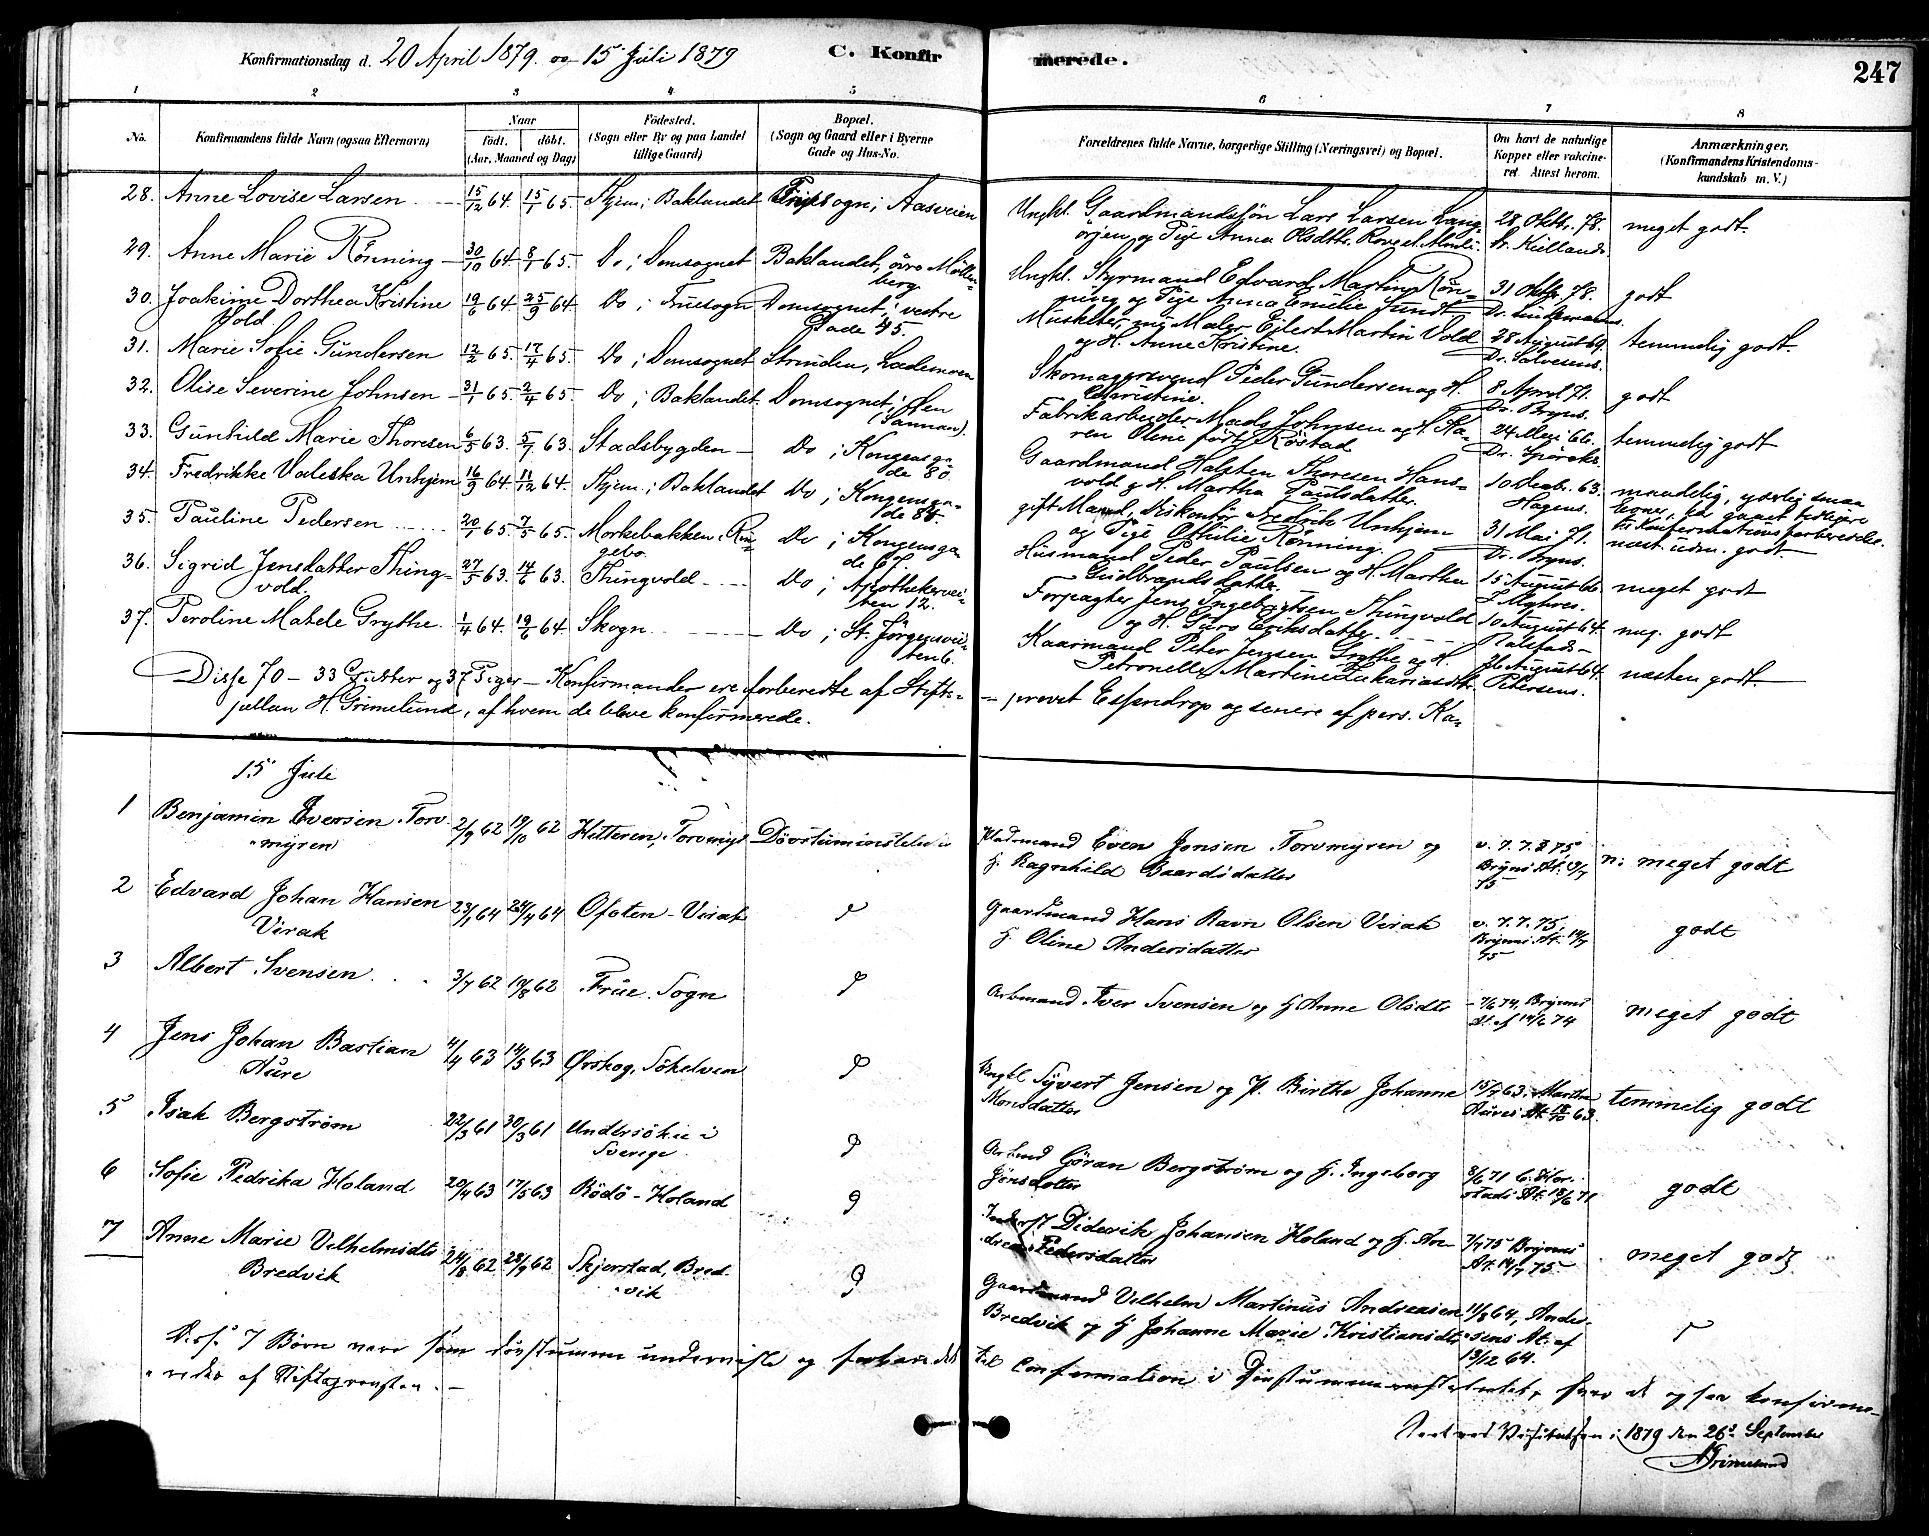 Konfirmationsdag d. 20 April 1879. og 15 Juli 1879
C. Konfir
merede.
247
1 2 3 4 5 6 7 8
No.
Konfirmandens fulde Navn (ogsaa Efternavn)
Naar
født. døbt.
(Aar, Maaned og Dag)
Fødested.
(Sogn eller By og paa Landet
tillige Gaard)
Bopæl.
(Sogn og Gaard eller i Byerne
Gade og Hus-No.
Forældrenes fulde Navne, borgerlige Stilling (Næringsvei) og Bopæl.
Om havt de naturlige
Kopper eller vakcine-
ret. Attest herom.
Anmærkninger.
(Konfirmandens Kristendoms-
kundskab m. V.)
28. Anne Lovise Larsen 15/12 64. 15/1 65. Thjem; Baklandet Aasveien
Ungkl. Gaardmandsøn Lars Larsen Lang-
ørjen og Pige Anna Olsdtr. 28 Oktbr. 78.
Kiellands meget godt.
29. Anne Marie Rønning 30/10 64 8/1 65. Do; Domsognet Baklandet, øvre Møllen-
berg
Ungkl. Styrmand Edvard Martin Røn-
ning og Pige Anna Emilie Sundt 31 Oktbr. 78.
Dr. Lindemanns. godt
30. Joakime Dorthea Kristine
Vold. 19/6 64. 25/9 64. Do; Fruesogn Domsognet, vestre
Gade 45.
Musketer og Maler Ejlert Martin Vold
og H. Anne Kristine. 28 August 69
Dr. Sølvesens. temmelig godt.
31. Marie Sofie Gundersen 12/2 65. 17/4 65. Do; Domsognet Strinden, Lademoen
Skomagersvend Peder Gundersen og H.
Christine. 8 April 71.
Dr. Bryns. godt
32. Olise Severine Johnsen 31/1 65. 2/4 65. Do; Baklandet. Domsognet; Øen
(Sannan).
Fabrikarbeider Mads Johnsen og H. Ka-
ren Oline født Røstad 24 Mai 66.
Dr. temmelig godt
33. Gunhild Marie Thoresen 6/5 63. 5/7 63. Stadsbygden Do; Kongensga-
de 80.
Gaardmand Halsten Thoresen Hans-
vold og H. Martha Paulsdatter. 10 Decbr. 63.
Hagens.
34. Fredrikke Valeska Unhjem 16/9 64. 11/12 64. Thjem; Baklandet Do; Kongensga-
de 85.
gift Mand, Diskontør Fredrik Unhjem
og Pige Othilie Rønning. 31 Mai 71.
Dr. Bryns. godt
35. Pauline Pedersen 20/1 65. 7/5 65. Mørkebakken, Rin-
gebo. Do; Kongensga-
de 67.
Husmand Peder Paulsen og H. Martha
Gudbrandsdatter. 15 August 66
meget godt
36. Sigrid Jensdatter Thing-
vold. 27/5 63. 14/6 63. Thingvold Do; Apothekervei-
ten 12.
Forpagter Jens Ingebrigtsen Thingvold
og H. Guro Eriksdatter 10 August 64.
meg. godt
37. Peroline Matele Grythe. 1/4 64. 19/6 64. Skogn Do; St. Jørgensvei-
ten 6.
Kaarmand Peter Jensen Grythe og H.
Petronelle Martine Zakariasdtr. 26 August 64.
Petersens. næsten godt.
Disse 70 – 33 Gutter og 37 Piger – Konfirmander ere forberedte af Stifts-
provst Essendrop og senere af pers. Ka-
pellan H. Grimelund, af hvem de bleve konfirmerede.
15 Juli
1 Benjamin Eversen Torv-
myren 2/9 62 19/10 62 Hitteren, Torvmyr Døvstuminstitutet
Pladsmand Even Jonsen Torvmyren og
H. Ragnhild Baardsdatter v. 7.7.75
Bryns At. 14/7
75 n. meget godt
2 Edvard Johan Hansen
Virak 23/1 64 24/4 64 Ofoten – Virak
Gaardmand Hans Ravn Olsen Virak
H. Oline Andersdatter v. 7.7.75,
Bryns At. 14/7
75 godt
3 Albert Svensen 3/7 62 19/8 62 Frue Sogn
Arbmand Iver Svensen og H Anne Olsdtr 7/6 74, Bryns
At. af 14/6 74 meget godt
4 Jens Johan Bastian
Aure 4/4 63 14/5 63 Ørskog, Søkelven
Ungkl Syvert Jensen og P. Birthe Johanne
Monsdatter 15/7 63. Martin
Aures At. 63. temmelig godt
5 Isak Bergstrøm 22/3 61 30/3 61 Undersøker i
Sverige
Arbmd Göran Bergstrøm og H. Ingeborg
Jönsdatter 8/6 71
At. 18/6 71 godt
6 Sofie Fedrika Holand 20/4 63 17/5 63 Rödö – Holand
Inderst Diderik Johansen Holand og H. An-
drea Pedersdatter 7/7 75 Bryns
At. 14/7 75. meget godt
7 Anne Marie Vilhelmsdtr
Bredvik 24/8 62 28/9 62 Skjerstad, Bred-
vik
Gaardmand Vilhelm Martinus Andreasen
Bredvik og H Johanne Marie Kristiansdtr 11/8 64, Ander-
sens At. af
13/12 64.
Disse 7 Børn vare som døvstumme underviste og forberedte
til Confirmation i Døvstummeinstitutet, hvor de ogsaa konfirme-
redes af Stiftsprovsten. –
Seet ved Visitatsen i 1879 den 26d September
Grimelund